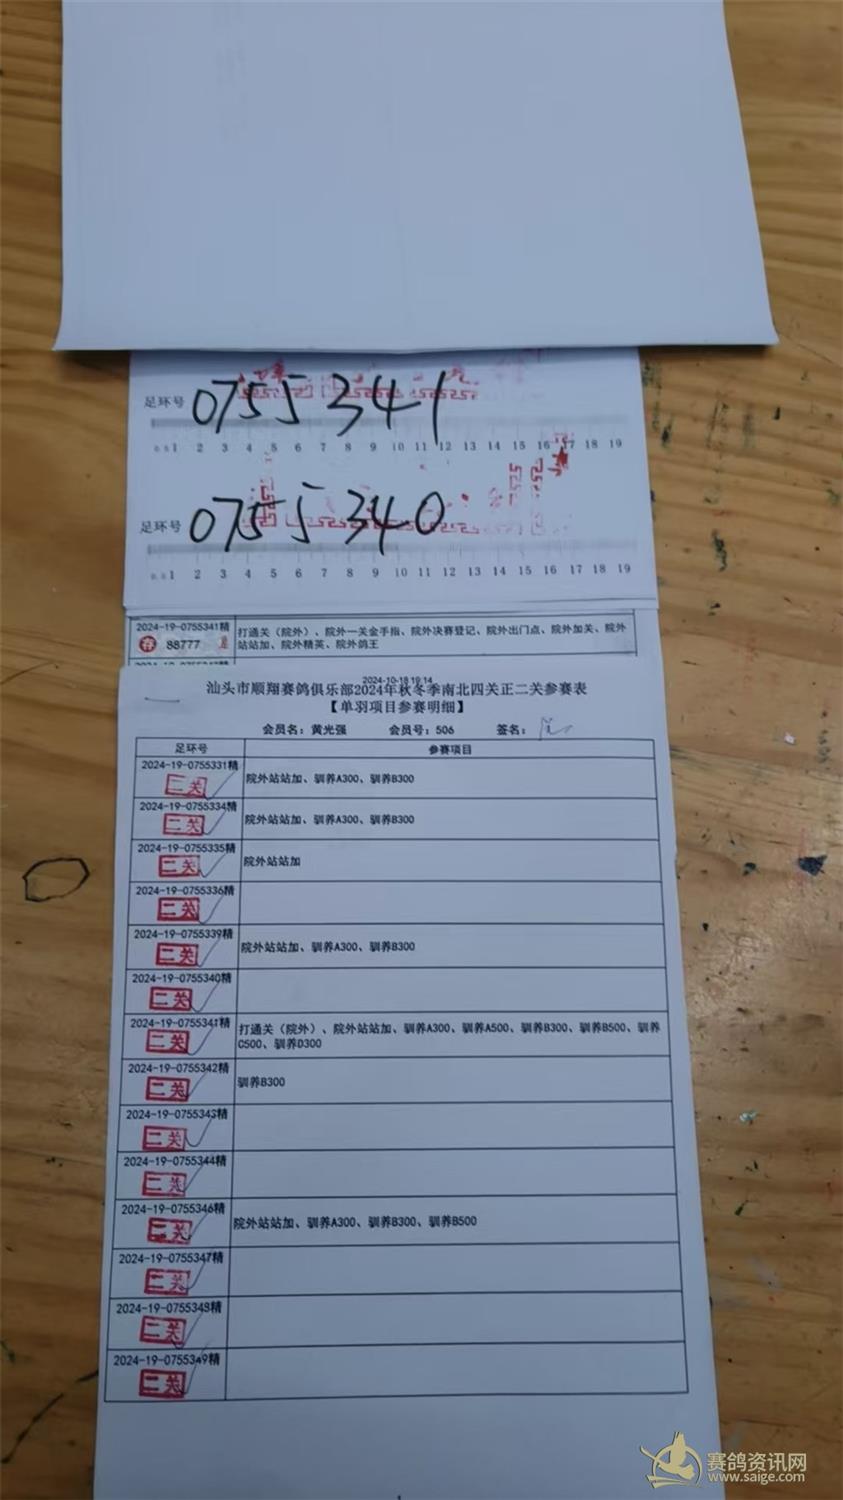 足环号 0755341
0.5 1 2 3 4 5 6 7 8 9 10 11 12 13 14 15 16 17 18 19
足环号 0755340
0.5 1 2 3 4 5 6 7 8 9 10 11 12 13 14 15 16 17 18 19
2024-19-0755341精
打通关（院外）、院外一关金手指、院外决赛登记、院外出门点、院外加关、院外
荐 88777
站站加、院外精英、院外鸽王
2024-10-18 19:14
汕头市顺翔赛鸽俱乐部2024年秋冬季南北四关正二关参赛表
【单羽项目参赛明细】
会员名：黄光强 会员号：506 签名：
足环号 参赛项目
2024-19-0755331精
二关
院外站站加、驯养A300、驯养B300
2024-19-0755334精
二关
院外站站加、驯养A300、驯养B300
2024-19-0755335精
二关
院外站站加
2024-19-0755336精
二关
2024-19-0755339精
二关
院外站站加、驯养A300、驯养B300
2024-19-0755340精
二关
2024-19-0755341精
二关
打通关（院外）、院外站站加、驯养A300、驯养A500、驯养B300、驯养B500、驯养
C500、驯养D300
2024-19-0755342精
二关
驯养B300
2024-19-0755343精
二关
2024-19-0755344精
二关
2024-19-0755346精
二关
院外站站加、驯养A300、驯养B300、驯养B500
2024-19-0755347精
二关
2024-19-0755348精
二关
2024-19-0755349精
二关
赛鸽资讯网
www.saige.com